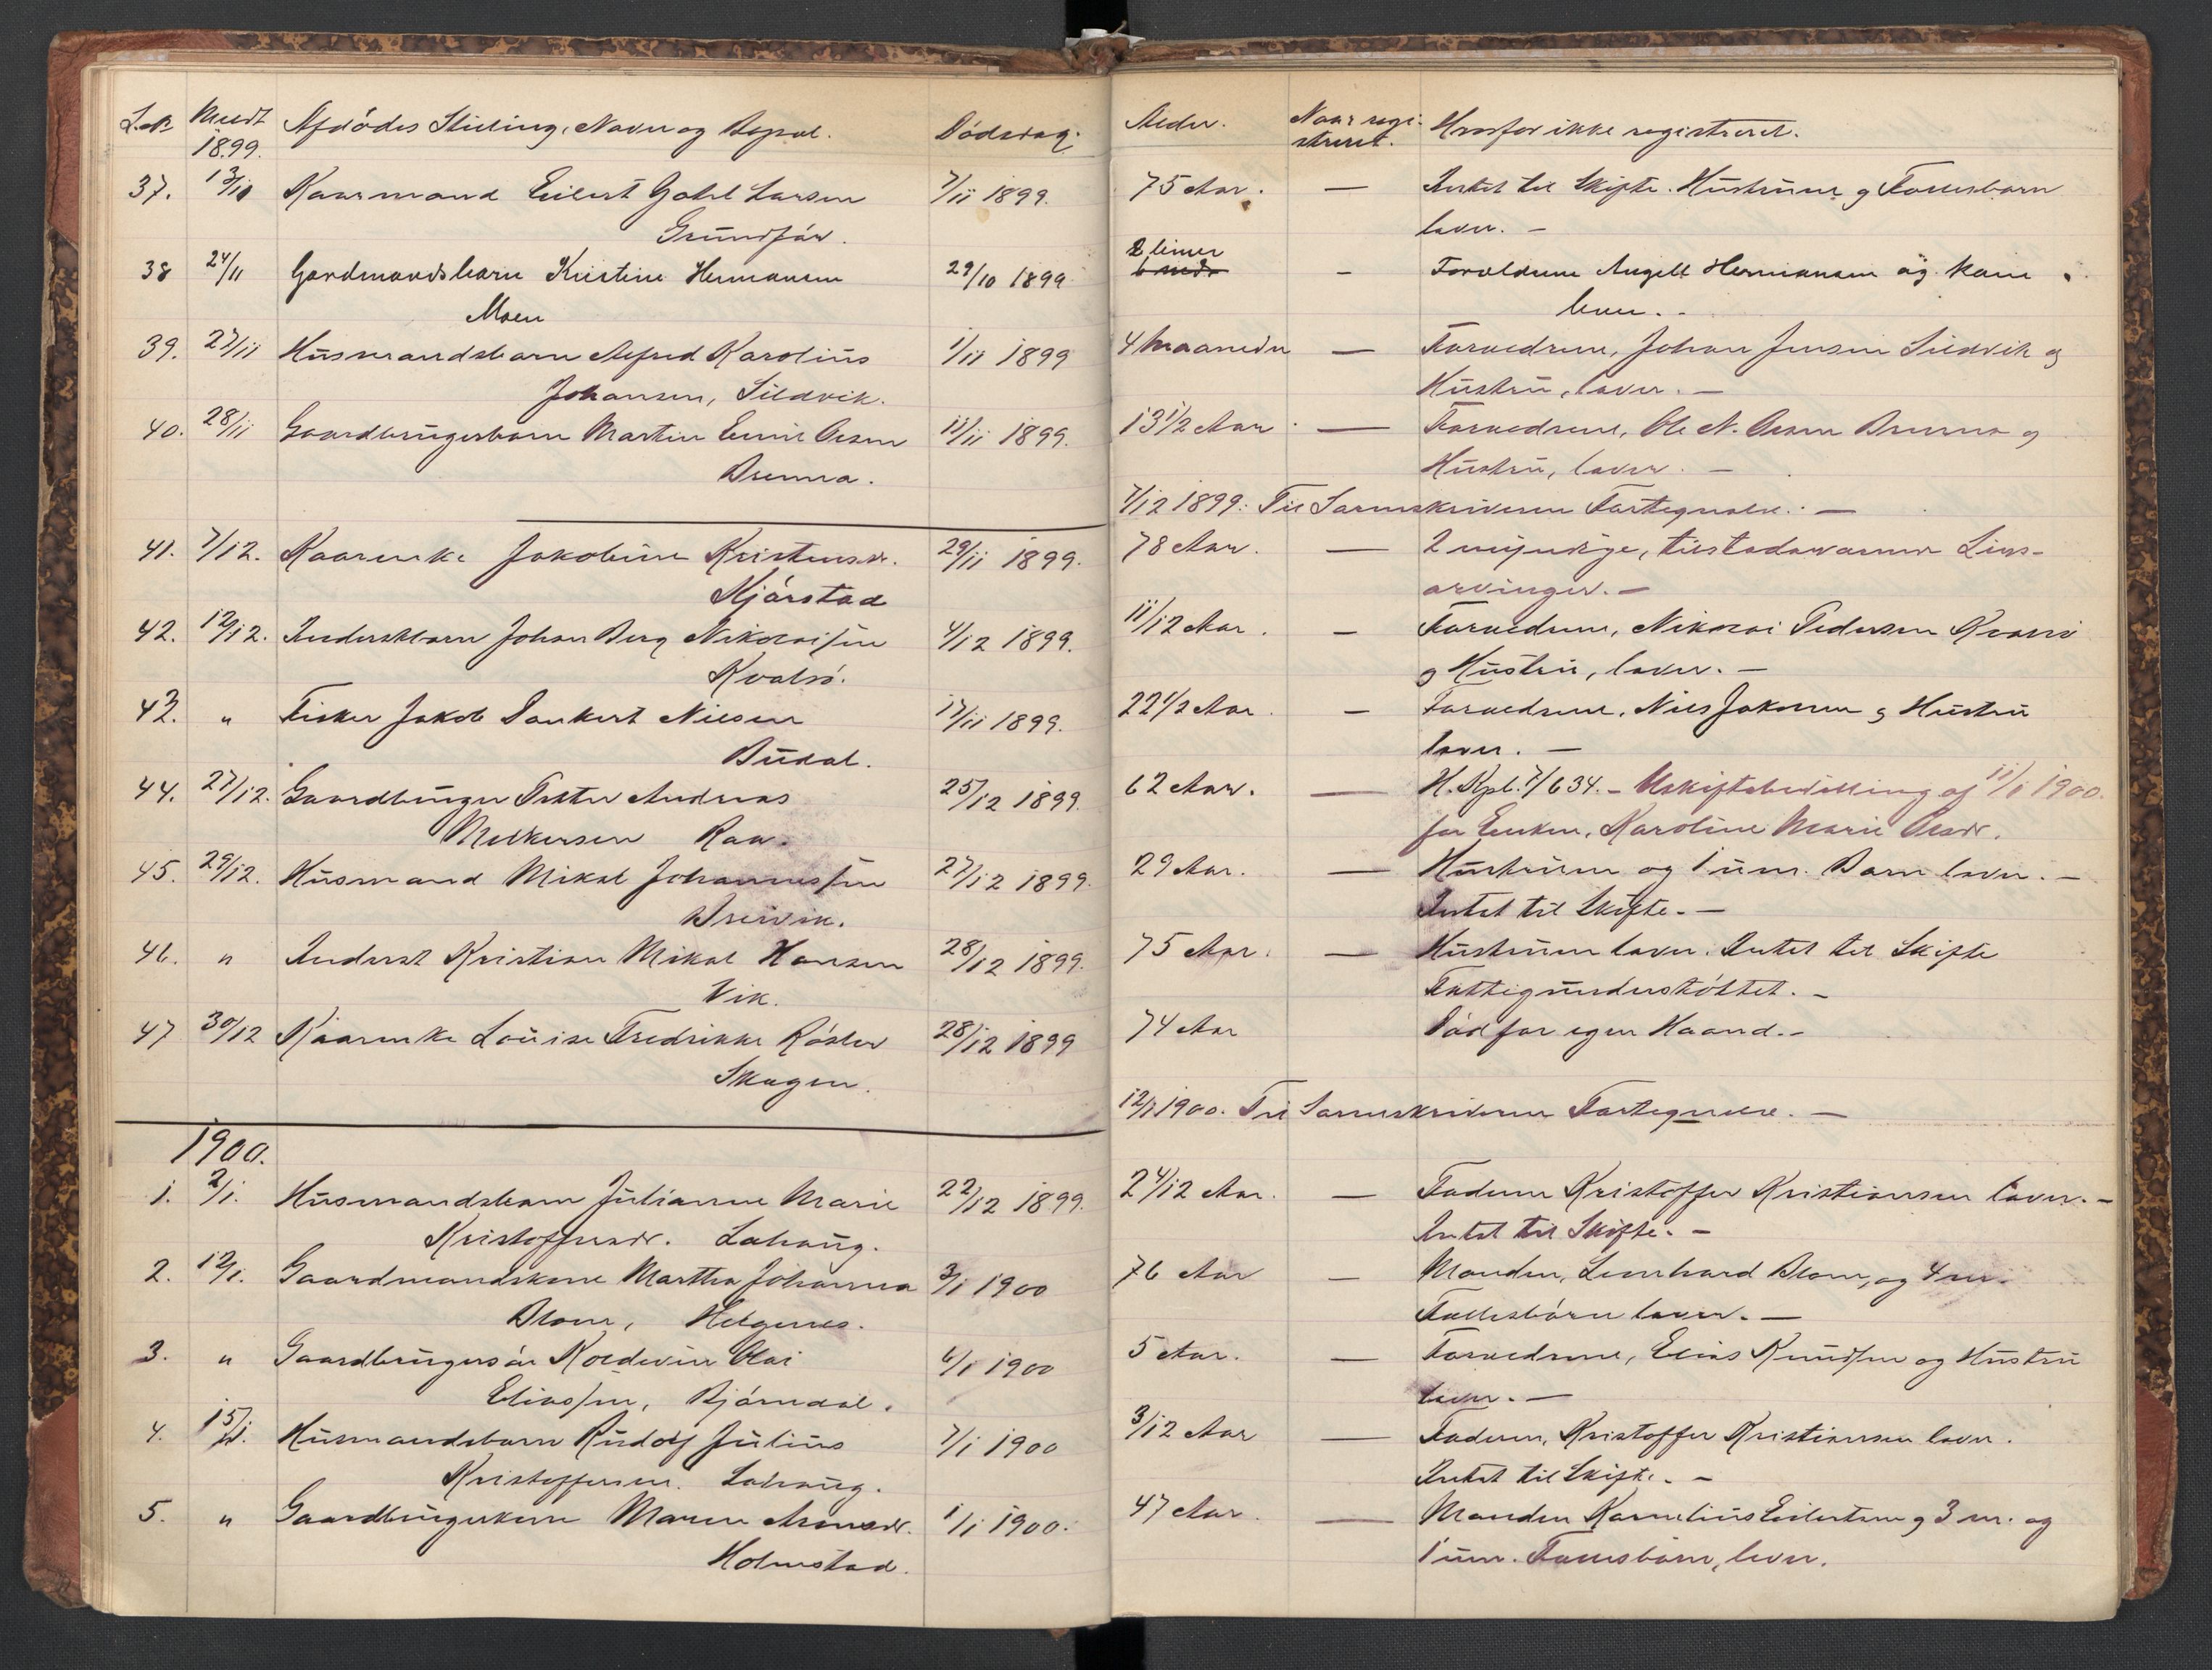 L.No Meldt 1899. Afdødes Stilling, Navn og Bopæl. Dödsdag.
37. 13/11 Kaarmand Eilert Gabel Larsen 7/11 1899.
Grundför.
38 24/11 Gardmandsbarn Kristine Hermansen 29/10 1899
Moen
39. 27/11 Husmandsbarn Alfred Karolius 1/11 1899
Johansen, Sildvik.
40. 28/11 Gaardbrugerbarn Martin Emil Olsen 11/11 1899.
Brenna.
41. 7/12. Kaarenke Jakobine Kristensdr. 29/11 1899.
Kjørstad
42. 12/12. Inderstbarn Johan Berg Nikolaisen 4/12 1899.
Kvalsö.
43. " Fisker Jakob Dankert Nilsen 17/11 1899.
Budal.
44. 27/12. Gaardbruger Petter Andreas 25/12 1899.
Melkersen Raa.
45. 29/12. Husmand Mikal Johannessen 27/12 1899.
Breivik.
46. " Inderst Kristian Mikal Hansen 28/12 1899.
Vik.
47 30/12 Kaarenke Louise Fredrikke Röster 28/12 1899
Skagen.
1900.
1. 2/1. Husmandsbarn Julianne Marie 22/12 1899.
Kristoffersdr. Lahaug.
2. 12/1. Gaardmandskone Martha Johanna 3/1 1900
Blom, Helgenes.
3. " Gaardbrugersön Koldevin Olai 6/1 1900
Eliassen, Bjørndal.
4. 15/1. Husmandsbarn Rudolf Julius 7/1 1900
Kristoffersen. Lahaug.
5. " Gaardbrugerkone Maren Arensdr. 1/1 1900.
Holmstad.
Alder. Naar registreret. Hvorfor ikke registreret.
75 Aar. — Intet til Skifte. Hustruen og Fællesbarn
lever. —
2 timer
6 mdr - Forældrene Angell Hermansen og kone
lever. -
4 Maaneder — Forældrene, Johan Jensen Sildvik og
Hustru, lever. —
13 1/2 Aar — Forældrene, Ole N. Olsen Brenna og
Hustru, lever. —
7/12 1899. Til Sorenskriveren Fortegnelse. —
78 Aar. — 2 myndige, tilstedeværende Livs-
arvinger. —
11/12 Aar. — Forældrene, Nikolai Pedersen Kvalsö
og Hustru, lever. —
22 1/2 Aar. — Forældrene, Nils Jakobsen og Hustru
lever. —
62 Aar. — H. Kpl. 7/634. - Uskiftebevilling af 11/1 1900.
for Enken, Karoline Marie Olsdr.
29 Aar. — Hustruen og 1 um. Barn lever. —
Intet til Skifte. —
75 Aar. — Hustruen lever. Intet til Skifte
Fattigunderstöttet. —
74 Aar Död for egen Haand. -
12/1 1900. Til Sorenskriveren Fortegnelse. —
2 4/12 Aar. — Faderen Kristoffer Kristiansen lever. —
Intet til Skifte. —
76 Aar — Manden, Leonhard Blom, og 4 m.
Fællesbörn lever. —
5 Aar. — Forældrene, Elias Knudsen og Hustru
lever. —
3/12 Aar — Faderen, Kristoffer Kristiansen lever.
Intet til Skifte. —
47 Aar. — Manden Kornelius Eilertsen og 3 m. og
1 um. Fællesbörn, lever.